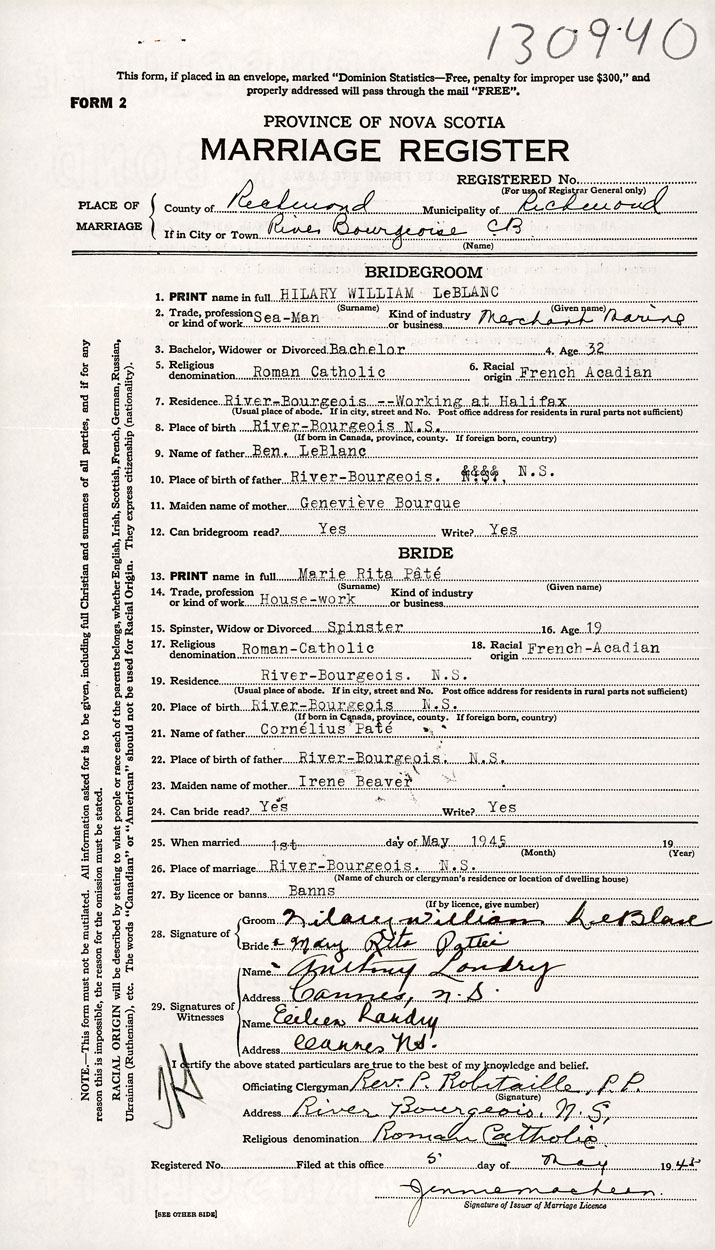 130940
This form, if placed in an envelope, marked "Dominion Statistics—Free, penalty for improper use $300," and
properly addressed will pass through the mail "FREE".
FORM 2
PROVINCE OF NOVA SCOTIA
MARRIAGE REGISTER
REGISTERED No.
(For use of Registrar General only)
PLACE OF MARRIAGE
County of Richmond Municipality of Richmond
If in City or Town River Bourgeoise CB
(Name)
BRIDEGROOM
1. PRINT name in full HILARY WILLIAM LeBLANC
(Surname) (Given name)
2. Trade, profession or kind of work Sea-Man Kind of industry or business Merchant Marine
3. Bachelor, Widower or Divorced Bachelor 4. Age 32
5. Religious denomination Roman Catholic 6. Racial origin French Acadian
7. Residence River-Bourgeois --Working at Halifax
(Usual place of abode. If in city, street and No. Post office address for residents in rural parts not sufficient)
8. Place of birth River-Bourgeois N.S.
(If born in Canada, province, county. If foreign born, country)
9. Name of father Ben. LeBlanc
10. Place of birth of father River-Bourgeois. , N.S.
11. Maiden name of mother Geneviève Bourque
12. Can bridegroom read? Yes Write? Yes
BRIDE
13. PRINT name in full Marie Rita Pâté
(Surname) (Given name)
14. Trade, profession or kind of work House-work Kind of industry or business
15. Spinster, Widow or Divorced Spinster 16. Age 19
17. Religious denomination Roman-Catholic 18. Racial origin French-Acadian
19. Residence River-Bourgeois. N.S.
(Usual place of abode. If in city, street and No. Post office address for residents in rural parts not sufficient)
20. Place of birth River-Bourgeois N.S.
(If born in Canada, province, county. If foreign born, country)
21. Name of father Cornélius Paté
22. Place of birth of father River-Bourgeois. N.S.
23. Maiden name of mother Irene Beaver
24. Can bride read? Yes Write? Yes
25. When married 1st day of May 1945 19
(Month) (Year)
26. Place of marriage River-Bourgeois. N.S.
(Name of church or clergyman's residence or location of dwelling house)
27. By licence or banns Banns
(If by licence, give number)
28. Signature of
Groom Hilary William LeBlanc
Bride Mary Rita Pattie
29. Signatures of Witnesses
Name Anthony Landry
Address Cannes, N.S.
Name Eileen Landry
Address Cannes N.S.
I certify the above stated particulars are true to the best of my knowledge and belief.
Officiating Clergyman Rev. P. Robitaille, P.P.
(Signature)
Address River Bourgeois, N.S,
Religious denomination Roman Catholic
Registered No. Filed at this office 5 day of May 1945
Signature of Issuer of Marriage Licence
[SEE OTHER SIDE]
NOTE.—This form must not be mutilated. All information asked for is to be given, including full Christian and surnames of all parties, and if for any
reason this is impossible, the reason for the omission must be stated.
RACIAL ORIGIN will be described by stating to what people or race each of the parents belongs, whether English, Irish, Scottish, French, German, Russian,
Ukrainian (Ruthenian), etc. The words "Canadian" or "American" should not be used for Racial Origin. They express citizenship (nationality).